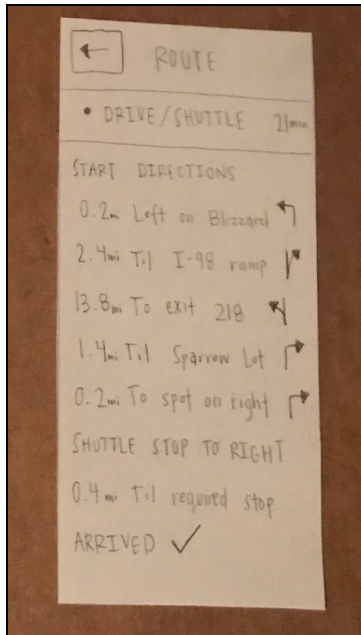 ROUTE
• DRIVE/SHUTTLE 21min
START DIRECTIONS
0.2mi Left on Blizzard
2.4mi Til I-98 ramp
13.8mi To exit 218
1.4mi Til Sparrow Lot
0.2mi To spot on right
SHUTTLE STOP TO RIGHT
0.4mi Til required stop
ARRIVED ✓